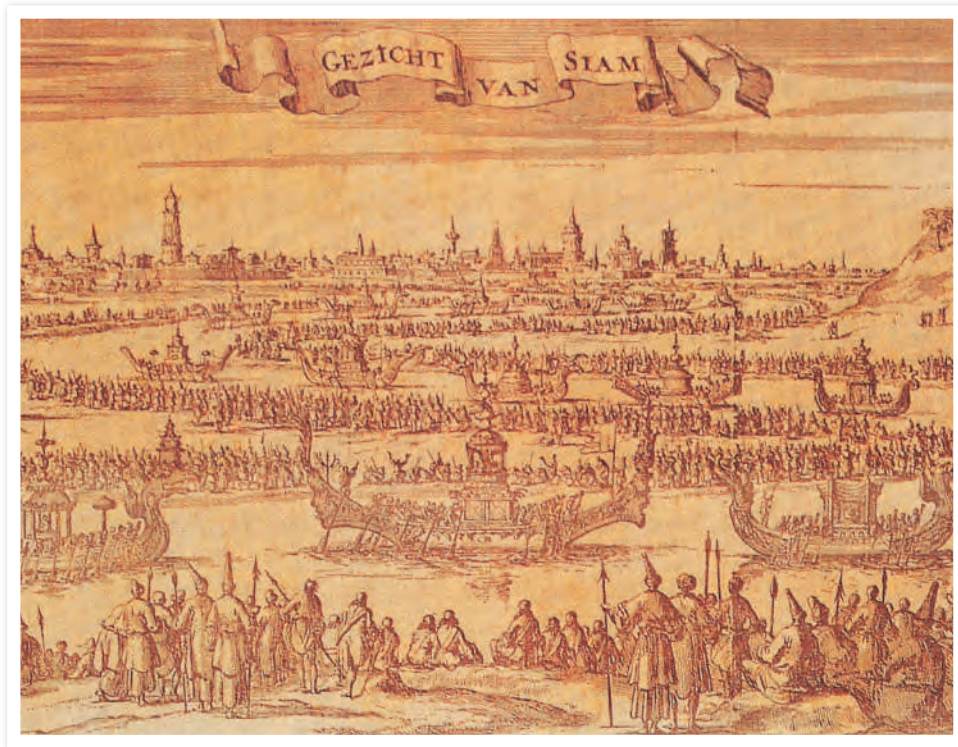 GEZICHT VAN SIAM